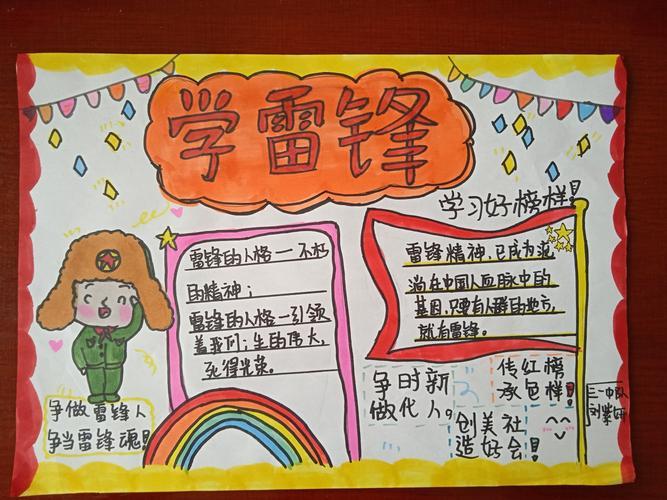 学雷锋
学习好榜样！
雷锋的人格一不朽
的精神；
雷锋的人格一引领
着我们；生的伟大，
死得光荣。
雷锋精神，已成为流
淌在中国人血脉中的
基因，只要有人群的地方，
就有雷锋。
争做雷锋人
争当雷锋魂！
争时新
做代人。
传红榜
承色样！
创美社
造好会！
三一中队